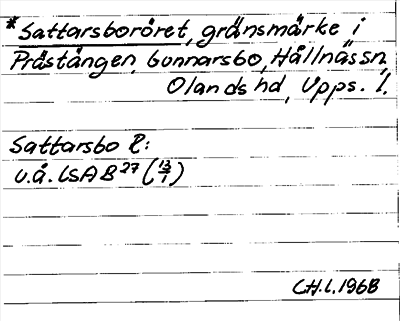 *Sattarsboröret, gränsmärke i
Prästängen, Gunnarsbo, Hållnässn,
Olands hd, Upps. l.
Sattarsbo R:
u.å. LSA B 27 (13/1)
C.H.l. 1968